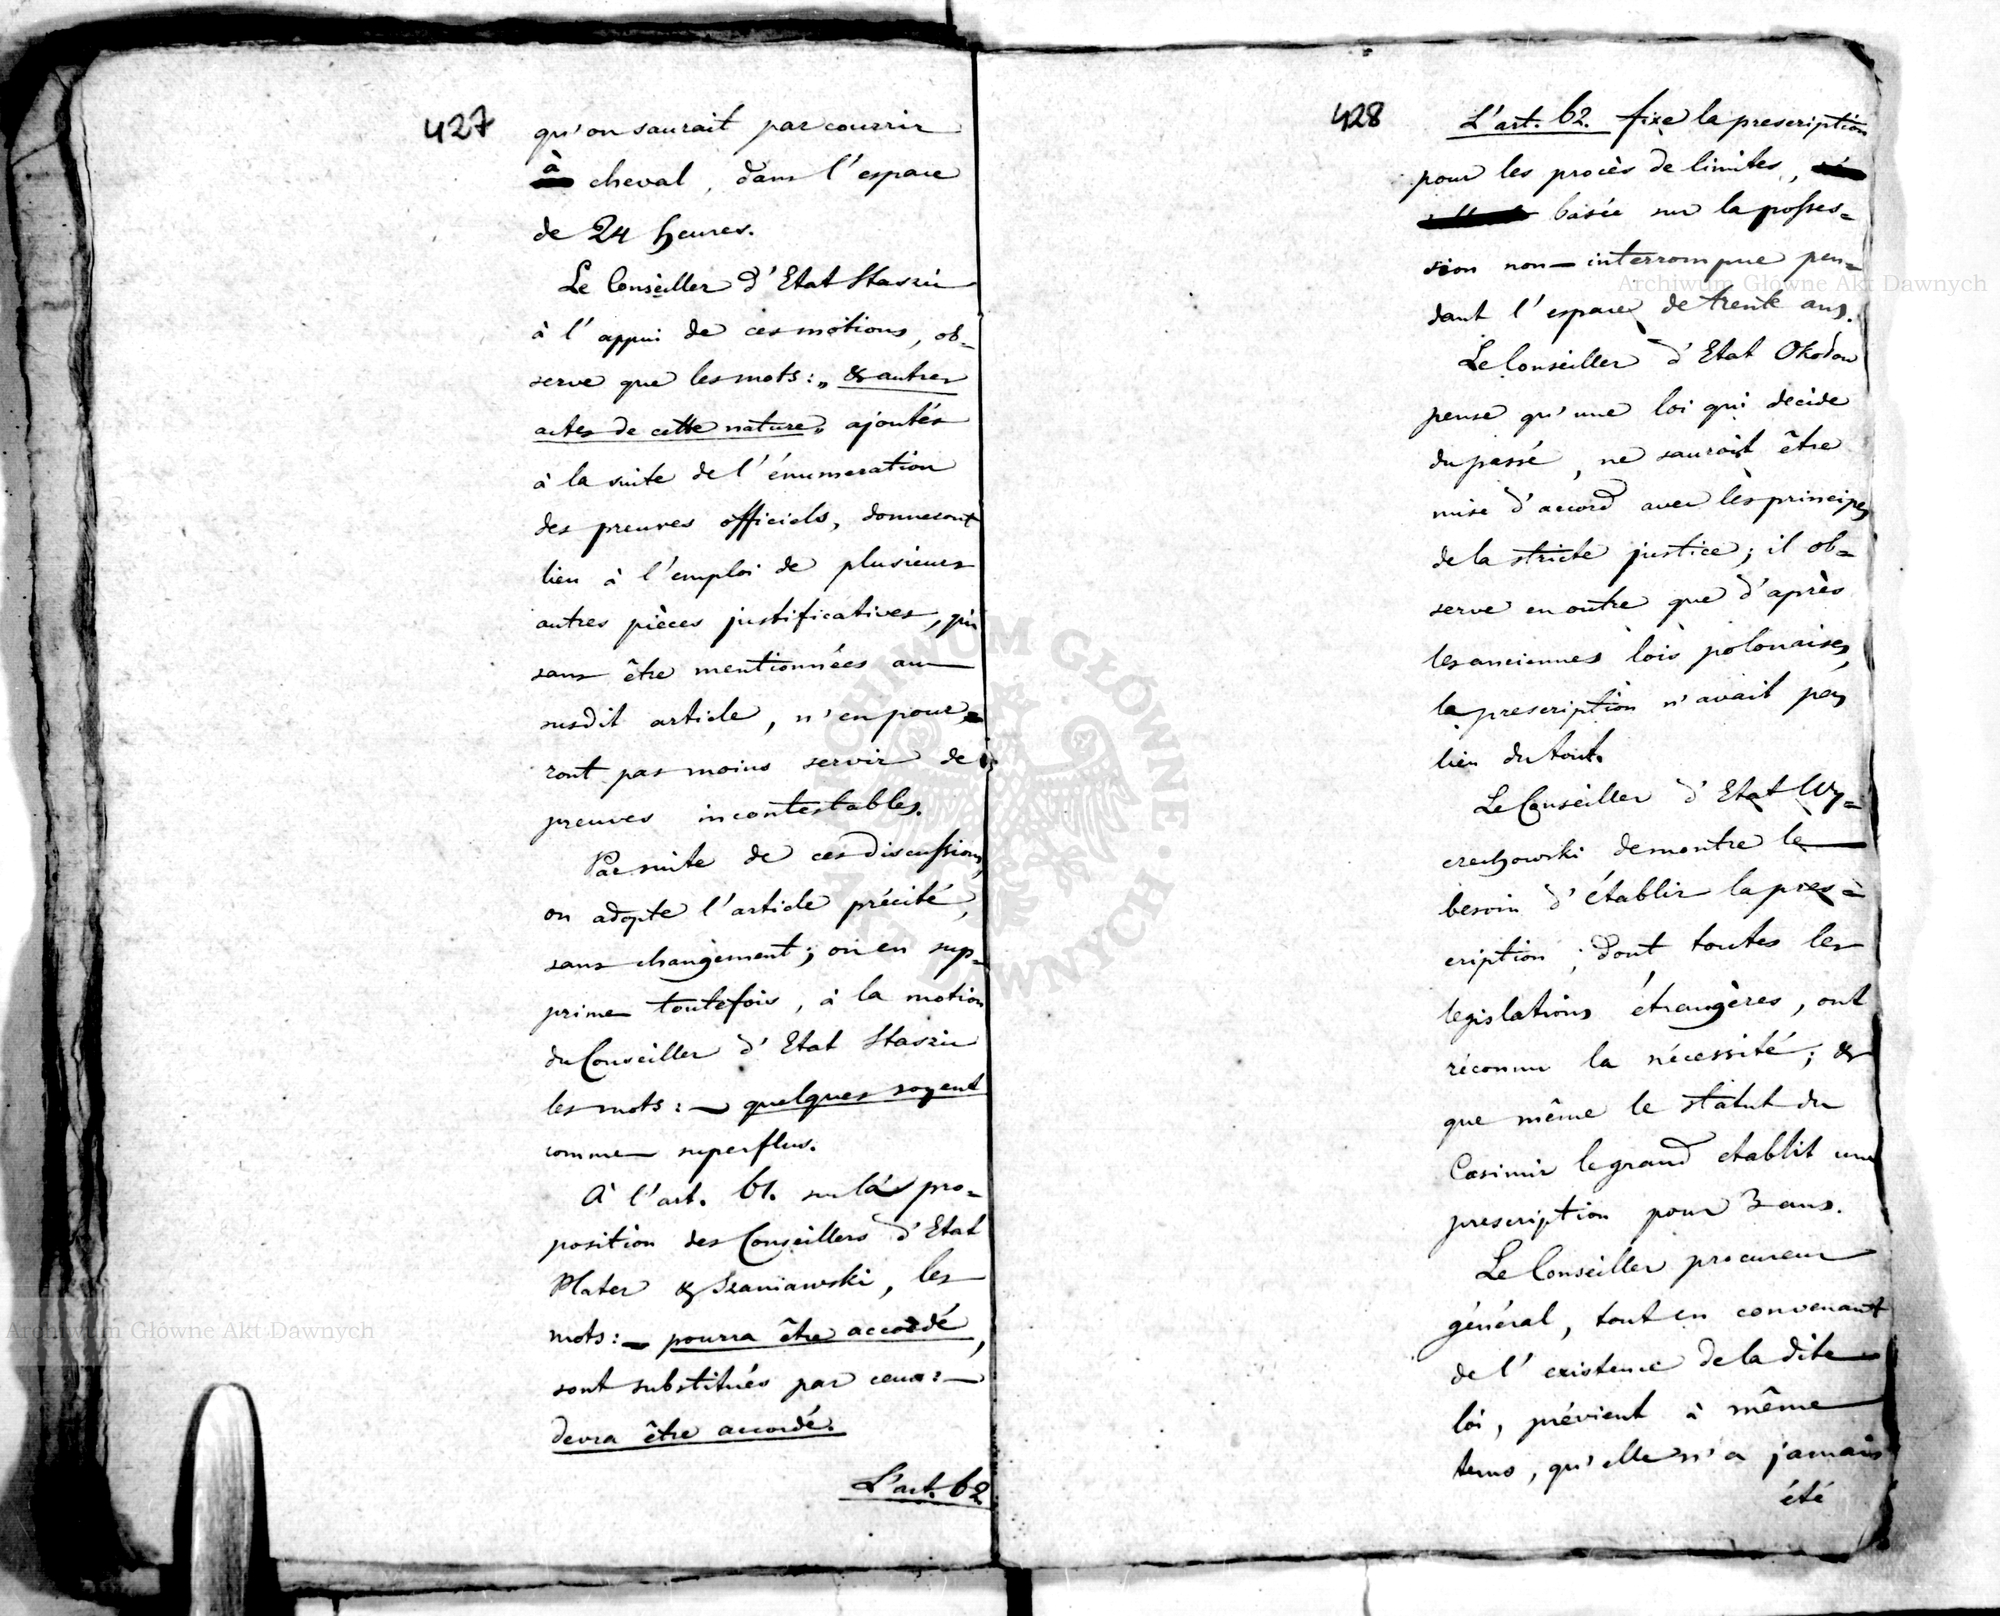 427
qu'on saurait parcourrir
à cheval, dans l'espace
de 24 heures.
Le Conseiller d'Etat Staszic
à l'appui de ces motions, ob=
serve que les mots: „ & autres
actes de cette nature„ ajoutés
à la suite de l'énumeration
des preuves officiels, donneront
lieu à l'emploi de plusieurs
autres pièces justificatives, qui
sans être mentionnées au
susdit article, n'en pour=
ront pas moins servir de
preuves incontestables.
Par suite de ces discussions,
on adopte l'article précité,
sans changement; on en sup=
prime toutefois, à la motion
du Conseiller d'Etat Staszic
les mots: — quelques soyent
comme superflus.
À l'art. 61. sur la pro=
position des Conseillers d'Etat
Plater & Szaniawski, les
mots: — pourra être accordé,
sont substitués par ceux: —
devra être accordé.
L'art. 62
428
L'art. 62. fixe la prescription
pour les procès de limites,
basée sur la posses=
sion non-interrompue pen=
dant l'espace de trente ans.
Le Conseiller d'Etat Okołow
pense qu'une loi qui décide
du passé, ne saurait être
mise d'accord avec les principes
de la stricte justice; il ob=
serve en outre que d'après
les anciennes lois polonaises,
la prescription n'avait pas
lieu du tout.
Le Conseiller d'Etat Wy=
czechowski demontre le
besoin d'établir la pres=
cription; dont toutes les
legislations étrangères, ont
réconnu la nécessité; &
que même le statut du
Casimir le grand etablit une
prescription pour 3 ans.
Le Conseiller procureur
général, tout en convenant
de l'existence de la dite
loi, prévient à même
tems, qu'elle n'a jamais
été
Archiwum Główne Akt Dawnych
Archiwum Główne Akt Dawnych
ARCHIWUM GŁÓWNE AKT DAWNYCH